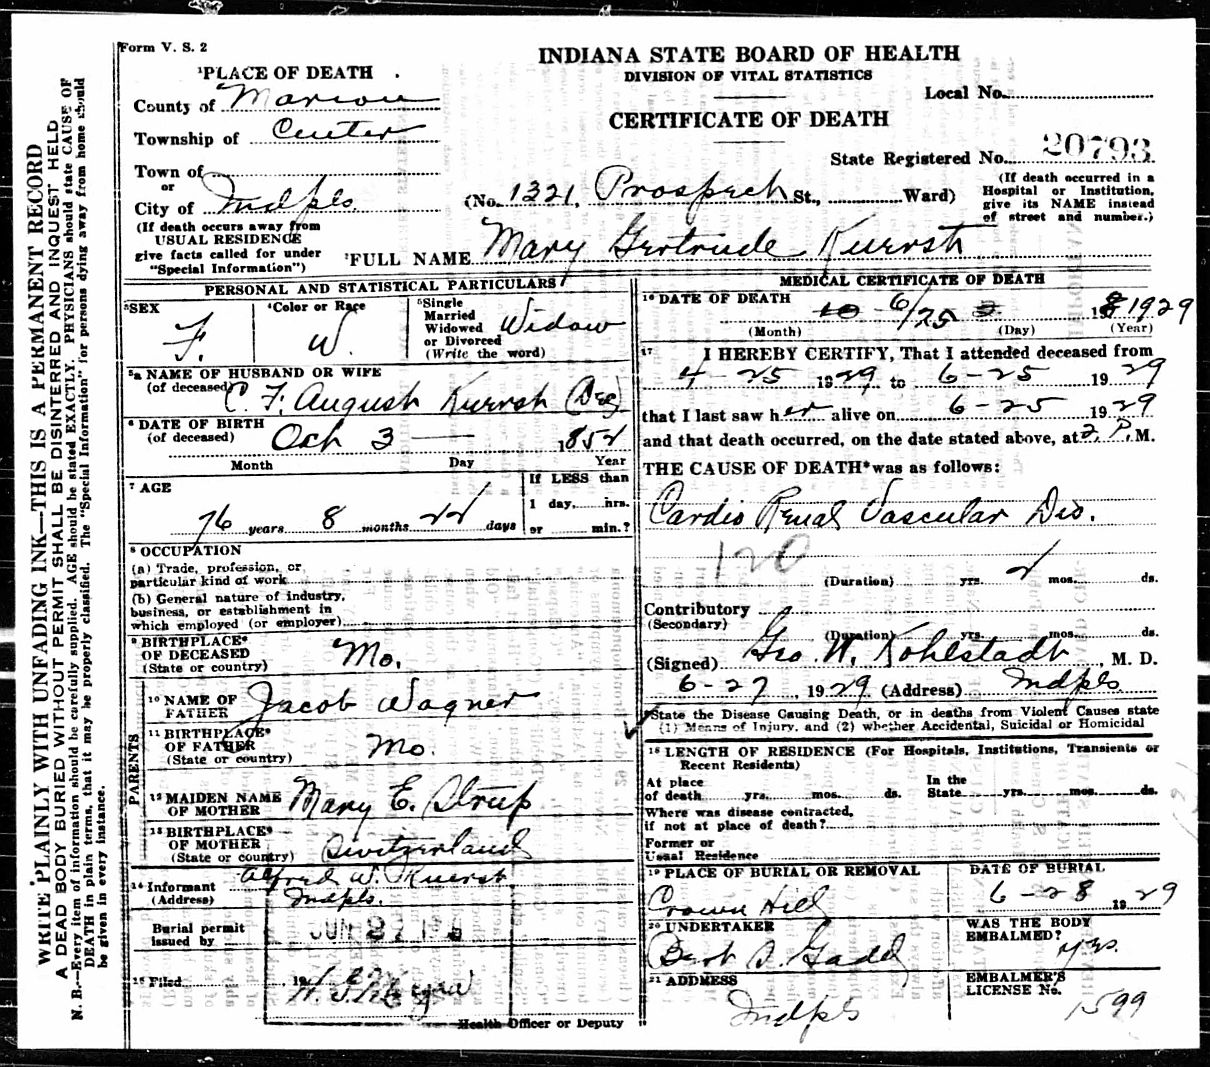 Form V. S. 2
INDIANA STATE BOARD OF HEALTH
DIVISION OF VITAL STATISTICS
CERTIFICATE OF DEATH
Local No.
State Registered No. 20793
1 PLACE OF DEATH
County of Marion
Township of Center
Town of
or
City of Indpls.
(No. 1321, Prospect St., Ward)
(If death occurred in a
Hospital or Institution,
give its NAME instead
of street and number.)
(If death occurs away from
USUAL RESIDENCE
give facts called for under
"Special Information")
2 FULL NAME Mary Gertrude Kuerst
PERSONAL AND STATISTICAL PARTICULARS
3 SEX
F.
4 Color or Race
W.
5 Single
Married
Widowed
or Divorced
(Write the word)
Widow
5a NAME OF HUSBAND OR WIFE
(of deceased) C. F. August Kuerst (Dec)
6 DATE OF BIRTH
(of deceased) Oct 3 — 1852
Month Day Year
7 AGE
76 years 8 months 22 days
If LESS than
1 day, hrs.
or min.?
8 OCCUPATION
(a) Trade, profession, or
particular kind of work
(b) General nature of industry,
business, or establishment in
which employed (or employer)
9 BIRTHPLACE
OF DECEASED
(State or country)
Mo.
PARENTS
10 NAME OF
FATHER
Jacob Wagner
11 BIRTHPLACE
OF FATHER
(State or country)
Mo.
12 MAIDEN NAME
OF MOTHER
Mary E.
13 BIRTHPLACE
OF MOTHER
(State or country)
Switzerland
14 Informant Alfred W. Kuerst
(Address) Indpls.
Burial permit
issued by
JUN 27
15 Filed 19
Health Officer or Deputy
MEDICAL CERTIFICATE OF DEATH
16 DATE OF DEATH
6/25 1929
(Month) (Day) (Year)
17 I HEREBY CERTIFY, That I attended deceased from
4-25 1929 to 6-25 1929
that I last saw her alive on 6-25 1929
and that death occurred, on the date stated above, at 2 P. M.
THE CAUSE OF DEATH* was as follows:
Cardio Renal Vascular Dis.
120
(Duration) yrs. 2 mos. ds.
Contributory
(Secondary)
(Duration) yrs. mos. ds.
(Signed) Geo. W. Kohlstadt, M. D.
6-27, 1929 (Address) Indpls.
State the Disease Causing Death, or in deaths from Violent Causes state
(1) Means of Injury, and (2) whether Accidental, Suicidal or Homicidal
18 LENGTH OF RESIDENCE (For Hospitals, Institutions, Transients or
Recent Residents)
At place
of death yrs. mos. ds.
In the
State yrs. mos. ds.
Where was disease contracted,
if not at place of death?
Former or
Usual Residence
19 PLACE OF BURIAL OR REMOVAL
Crown Hill
DATE OF BURIAL
6-28 1929
20 UNDERTAKER
Bert S. Gadd
WAS THE BODY
EMBALMED? yes.
21 ADDRESS
Indpls
EMBALMER'S
LICENSE No. 1599
WRITE PLAINLY WITH UNFADING INK—THIS IS A PERMANENT RECORD
A DEAD BODY BURIED WITHOUT PERMIT SHALL BE DISINTERRED AND INQUEST HELD
N. B.—Every item of information should be carefully supplied. AGE should be stated EXACTLY. PHYSICIANS should state CAUSE OF
DEATH in plain terms, that it may be properly classified. The "Special Information" for persons dying away from home should
be given in every instance.